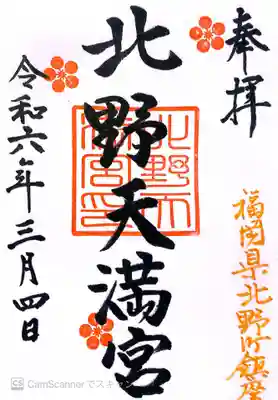 奉拝
福岡県北野町鎮座
北野天満宮
令和六年三月四日
CS CamScannerでスキャン